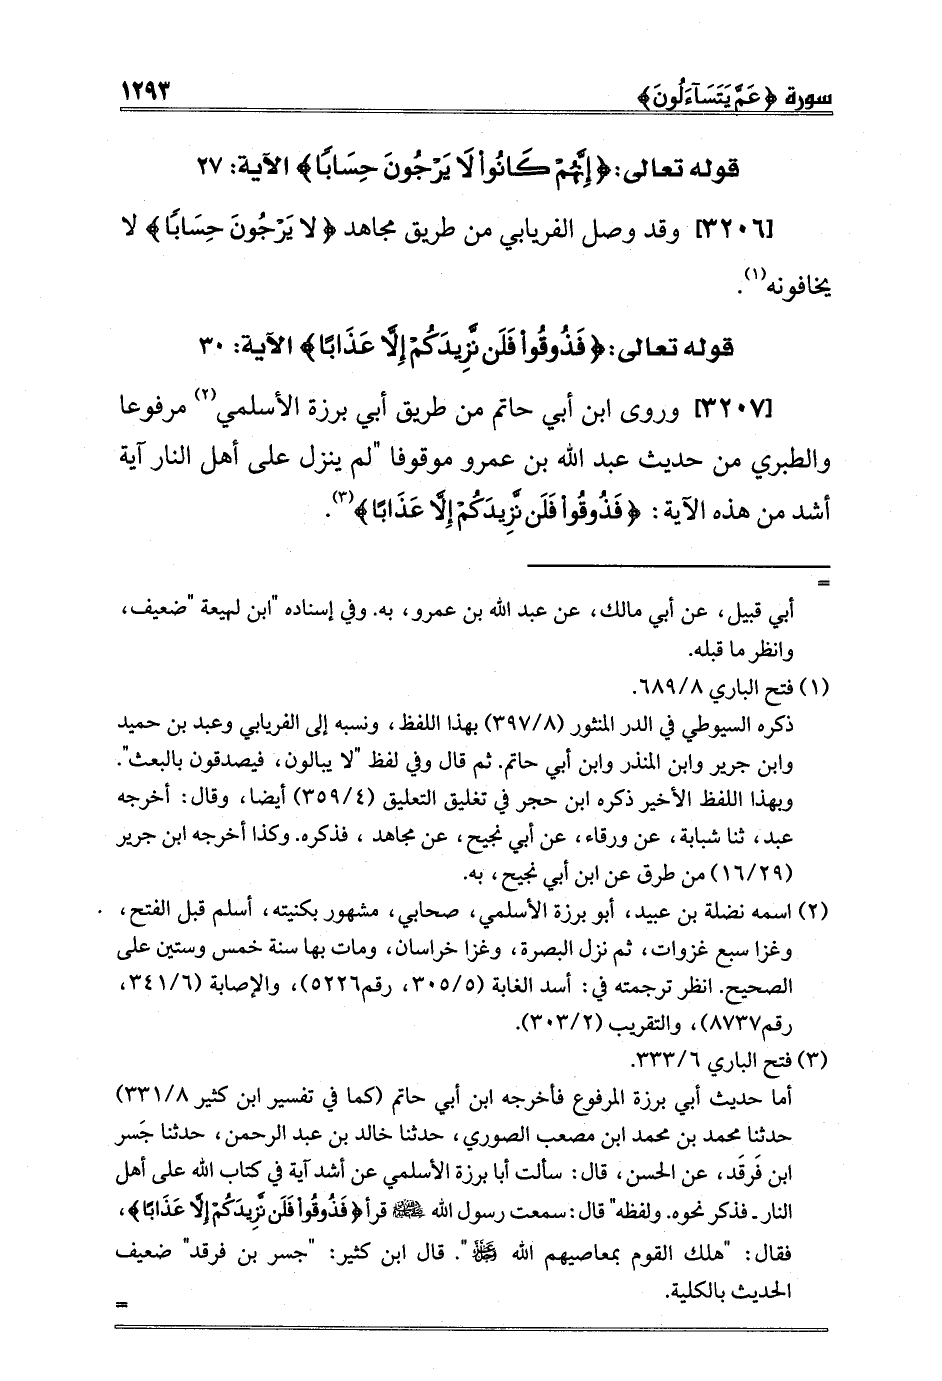 سورة ﴿عَمَّ يَتَسَآءَلُونَ﴾ ١٢٩٣
قوله تعالى: ﴿إِنَّهُمْ كَانُوا۟ لَا يَرْجُونَ حِسَابًا﴾ الآية: ٢٧
[٣٢٠٦] وقد وصل الفريابي من طريق مجاهد ﴿لا يَرْجُونَ حِسَابًا﴾ لا
يخافونه(١).
قوله تعالى: ﴿فَذُوقُوا۟ فَلَن نَّزِيدَكُمْ إِلَّا عَذَابًا﴾ الآية: ٣٠
[٣٢٠٧] وروى ابن أبي حاتم من طريق أبي برزة الأسلمي(٢) مرفوعا
والطبري من حديث عبد الله بن عمرو موقوفا "لم ينزل على أهل النار آية
أشد من هذه الآية: ﴿فَذُوقُوا۟ فَلَن نَّزِيدَكُمْ إِلَّا عَذَابًا﴾(٣).
=
أبي قبيل، عن أبي مالك، عن عبد الله بن عمرو، به. وفي إسناده "ابن لهيعة" ضعيف،
وانظر ما قبله.
(١) فتح الباري ٦٨٩/٨.
ذكره السيوطي في الدر المنثور (٣٩٧/٨) بهذا اللفظ، ونسبه إلى الفريابي وعبد بن حميد
وابن جرير وابن المنذر وابن أبي حاتم. ثم قال وفي لفظ "لا يبالون، فيصدقون بالبعث".
وبهذا اللفظ الأخير ذكره ابن حجر في تغليق التعليق (٣٥٩/٤) أيضا، وقال: أخرجه
عبد، ثنا شبابة، عن ورقاء، عن أبي نجيح، عن مجاهد، فذكره. وكذا أخرجه ابن جرير
(١٦/٢٩) من طرق عن ابن أبي نجيح، به.
(٢) اسمه نضلة بن عبيد، أبو برزة الأسلمي، صحابي، مشهور بكنيته، أسلم قبل الفتح،
وغزا سبع غزوات، ثم نزل البصرة، وغزا خراسان، ومات بها سنة خمس وستين على
الصحيح. انظر ترجمته في: أسد الغابة (٣٠٥/٥، رقم٥٢٢٦)، والإصابة (٣٤١/٦،
رقم٨٧٣٧)، والتقريب (٣٠٣/٢).
(٣) فتح الباري ٣٣٣/٦.
أما حديث أبي برزة المرفوع فأخرجه ابن أبي حاتم (كما في تفسير ابن كثير ٣٣١/٨)
حدثنا محمد بن محمد ابن مصعب الصوري، حدثنا خالد بن عبد الرحمن، حدثنا جَسر
ابن فَرقَد، عن الحسن، قال: سألت أبا برزة الأسلمي عن أشد آية في كتاب الله على أهل
النار ـ فذكر نحوه. ولفظه" قال: سمعت رسول الله ﷺ قرأ ﴿فَذُوقُوا۟ فَلَن نَّزِيدَكُمْ إِلَّا عَذَابًا﴾،
فقال: "هلك القوم بمعاصيهم الله ﷻ". قال ابن كثير: "جسر بن فرقد" ضعيف
الحديث بالكلية.
=